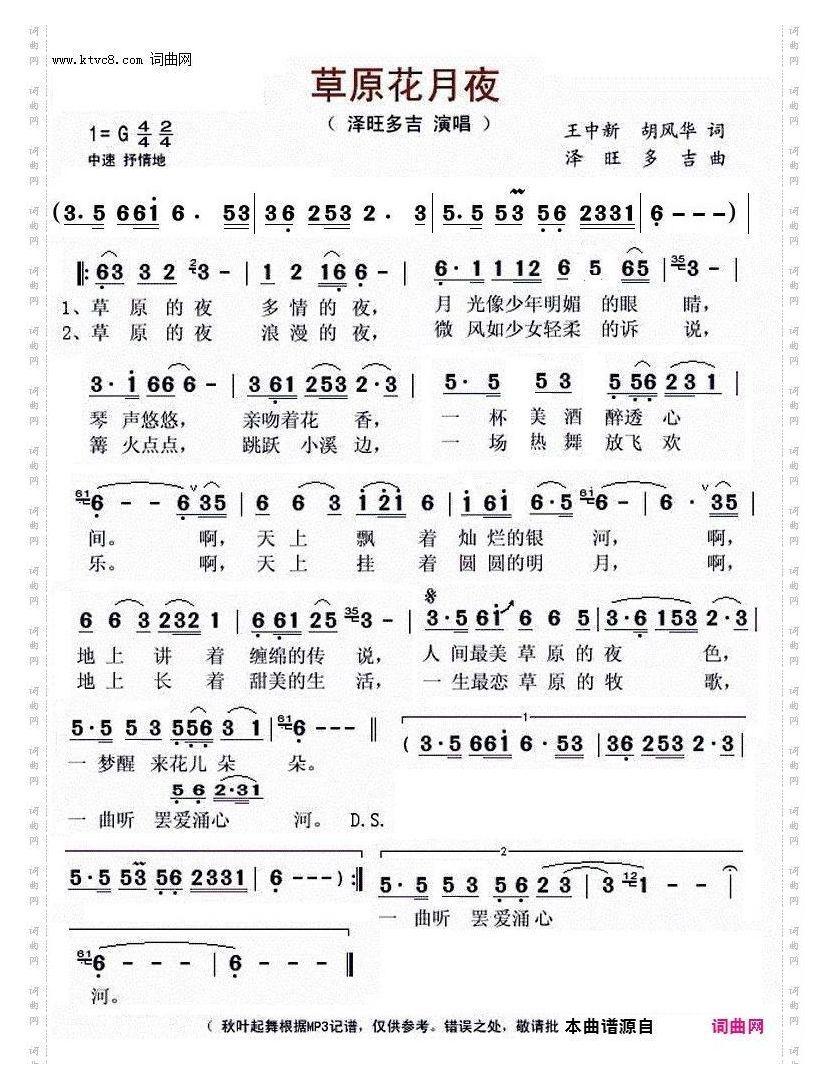 www.ktvc8.com 词曲网
草原花月夜
( 泽旺多吉 演唱 )
1=G 4/4 2/4
中速 抒情地
王中新 胡风华 词
泽旺多吉 曲
(3. 5 661 6. 53 | 36 253 2. 3 | 5. 5 53 56 2331 | 6 - - -) |
|: 63 3 2 2 3 - | 1 2 16 6 - | 6· 1 1 12 6 5 65 | 35 3 - |
1、草 原 的夜 多情的 夜, 月 光像少年明媚 的眼 睛,
2、草 原 的夜 浪漫的 夜, 微 风如少女轻柔 的诉 说,
3· 1 66 6 - | 3 61 253 2·3 | 5· 5 5 3 | 5 56 23 1 |
琴 声悠悠, 亲吻着花 香, 一 杯 美 酒 醉透 心
篝 火点点, 跳跃 小溪 边, 一 场 热 舞 放飞 欢
61 6 - - 6 v 35 | 6 6 3 | 1 21 6 | 1 61 6·5 | 61 6 - - v 35 |
间。 啊, 天 上 飘 着 灿 烂的银 河, 啊,
乐。 啊, 天 上 挂 着 圆 圆的明 月, 啊,
6 63 232 1 | 6 61 25 35 3 - | 3·5 61 6 6 5 | 3·6 153 2·3 |
地 上 讲 着 缠绵的传 说, 人 间最美 草 原 的夜 色,
地 上 长 着 甜美的生 活, 一 生最恋 草 原 的牧 歌,
5·5 5 3 556 3 1 | 61 6 - - - ‖ 1 (3·5 661 6·53 | 36 253 2·3 |
一梦醒 来花儿 朵 朵。
5 6 2·31
一曲听 罢爱涌心 河。 D.S.
5·5 53 56 2331 | 6 - - - ) :‖ 2 5· 5 5 3 5 6 2 3 | 3 12 1 - - |
一 曲听 罢爱涌 心
61 6 - - - | 6 - - ‖
河。
( 秋叶起舞根据MP3记谱，仅供参考。错误之处，敬请批 本曲谱源自 词曲网